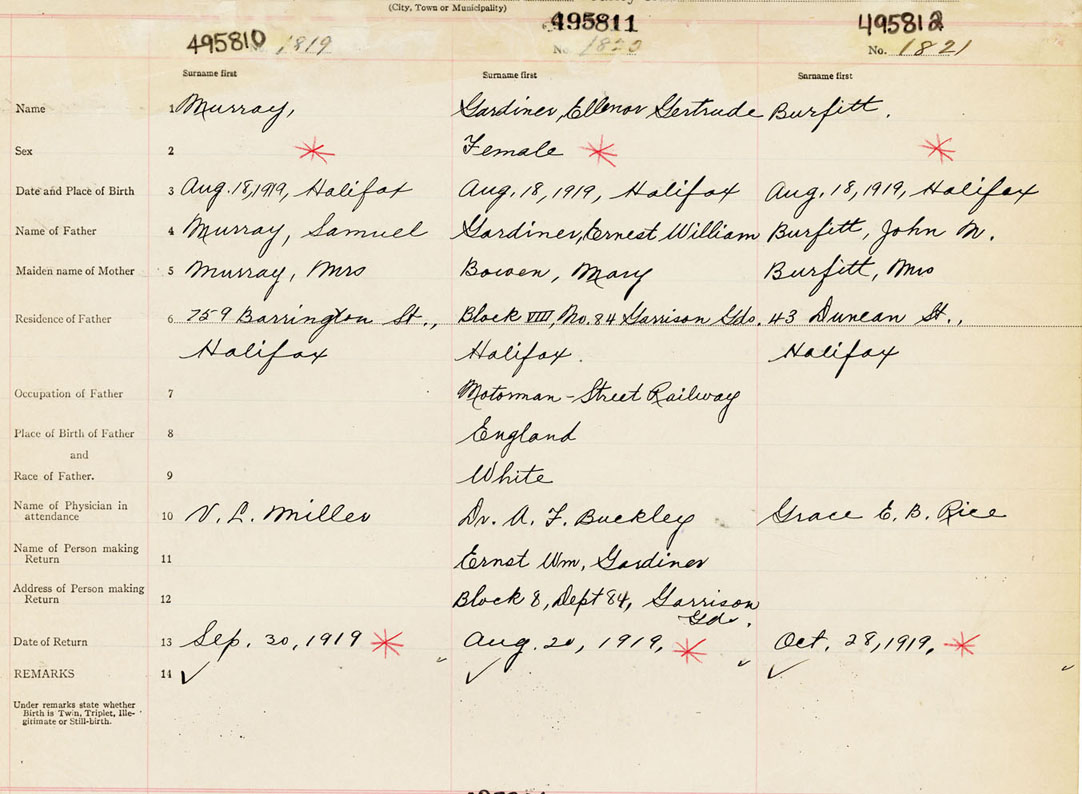 (City, Town or Municipality)
495810 No. 1819
495811
No. 1820
495812
No. 1821
Surname first Surname first Surname first
Name 1 Murray, Gardiner, Ellenor Gertrude Burfitt.
Sex 2 Female
Date and Place of Birth 3 Aug. 18, 1919, Halifax Aug. 18, 1919, Halifax Aug. 18, 1919, Halifax
Name of Father 4 Murray, Samuel Gardiner, Ernest William Burfitt, John M.
Maiden name of Mother 5 Murray, Mrs Bowen, Mary Burfitt, Mrs
Residence of Father 6 759 Barrington St., Block VIII, No. 84 Garrison Gds. 43 Duncan St.,
Halifax Halifax. Halifax
Occupation of Father 7 Motorman - Street Railway
Place of Birth of Father 8 England
and
Race of Father. 9 White
Name of Physician in
attendance 10 V. L. Miller Dr. A. F. Buckley Grace E. B. Rice
Name of Person making
Return 11 Ernst Wm, Gardiner
Address of Person making
Return 12 Block 8, Dept 84, Garrison
Gds.
Date of Return 13 Sep. 30, 1919 Aug. 20, 1919, Oct. 28, 1919.
REMARKS 14 ✓ ✓ ✓
Under remarks state whether
Birth is Twin, Triplet, Ille-
gitimate or Still-birth.